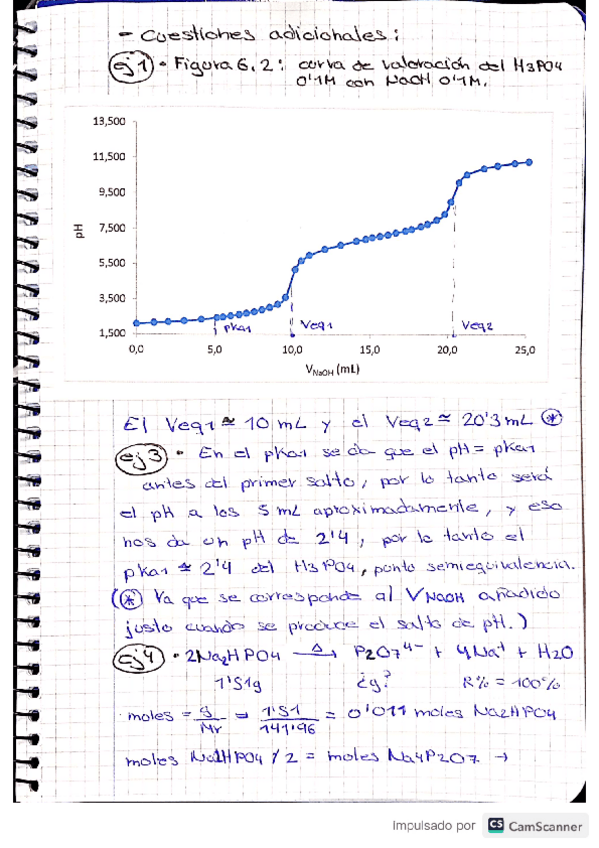 - Cuestiones adicionales:
ej 1) • Figura 6.2: curva de valoración del H3PO4
0'1M con NaOH 0'1M.
13,500
11,500
9,500
7,500
5,500
3,500
1,500
pH
pKa1
Veq1
Veq2
0,0 5,0 10,0 15,0 20,0 25,0
VNaOH (mL)
El Veq1 ≃ 10 mL y el Veq2 ≃ 20'3 mL (*)
ej 3) • En el pKa1 se da que el pH = pKa1
antes del primer salto, por lo tanto será
el pH a los 5 mL aproximadamente, y eso
nos da un pH de 2'4, por lo tanto el
pKa1 ≃ 2'4 del H3PO4, punto semiequivalencia.
((*) Ya que se corresponde al VNaOH añadido
justo cuando se produce el salto de pH.)
ej 4) • 2Na2HPO4 —Δ→ P2O7⁴⁻ + 4Na⁺ + H2O
1'51g ¿g? R% = 100%
moles = g/Mr = 1'51/141'96 = 0'011 moles Na2HPO4
moles Na2HPO4 / 2 = moles Na4P2O7 →
Impulsado por CS CamScanner